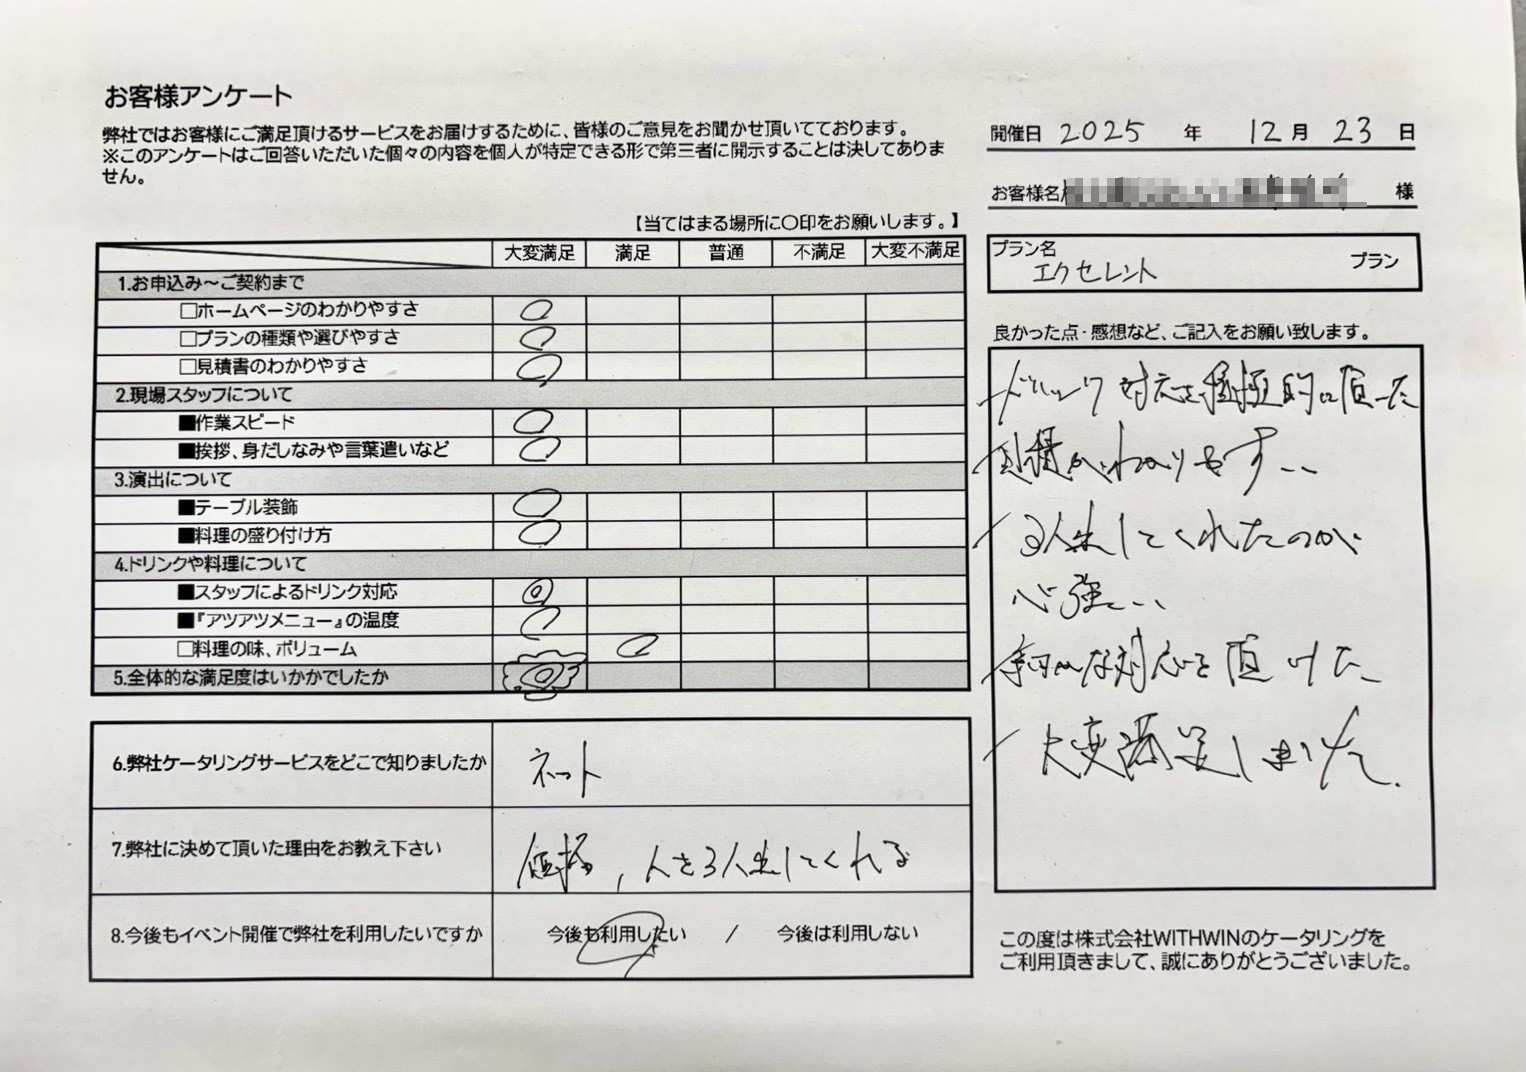 お客様アンケート
弊社ではお客様にご満足頂けるサービスをお届けするために、皆様のご意見をお聞かせ頂いてております。
※このアンケートはご回答いただいた個々の内容を個人が特定できる形で第三者に開示することは決してありま
せん。
【当てはまる場所に〇印をお願いします。】
大変満足 満足 普通 不満足 大変不満足
1.お申込み～ご契約まで
□ホームページのわかりやすさ
□プランの種類や選びやすさ
□見積書のわかりやすさ
2.現場スタッフについて
■作業スピード
■挨拶、身だしなみや言葉遣いなど
3.演出について
■テーブル装飾
■料理の盛り付け方
4.ドリンクや料理について
■スタッフによるドリンク対応
■『アツアツメニュー』の温度
□料理の味、ボリューム
5.全体的な満足度はいかかでしたか
6.弊社ケータリングサービスをどこで知りましたか ネット
7.弊社に決めて頂いた理由をお教え下さい 価格, 人を3人出してくれる
8.今後もイベント開催で弊社を利用したいですか 今後も利用したい / 今後は利用しない
開催日 2025 年 12 月 23 日
お客様名 様
プラン名
エクセレント プラン
良かった点・感想など、ご記入をお願い致します。
ドリンク対応を積極的に頂った
がわかりやすい
3人出してくれたのが
心強い
な対応を頂けた
大変満足しました.
この度は株式会社WITHWINのケータリングを
ご利用頂きまして、誠にありがとうございました。